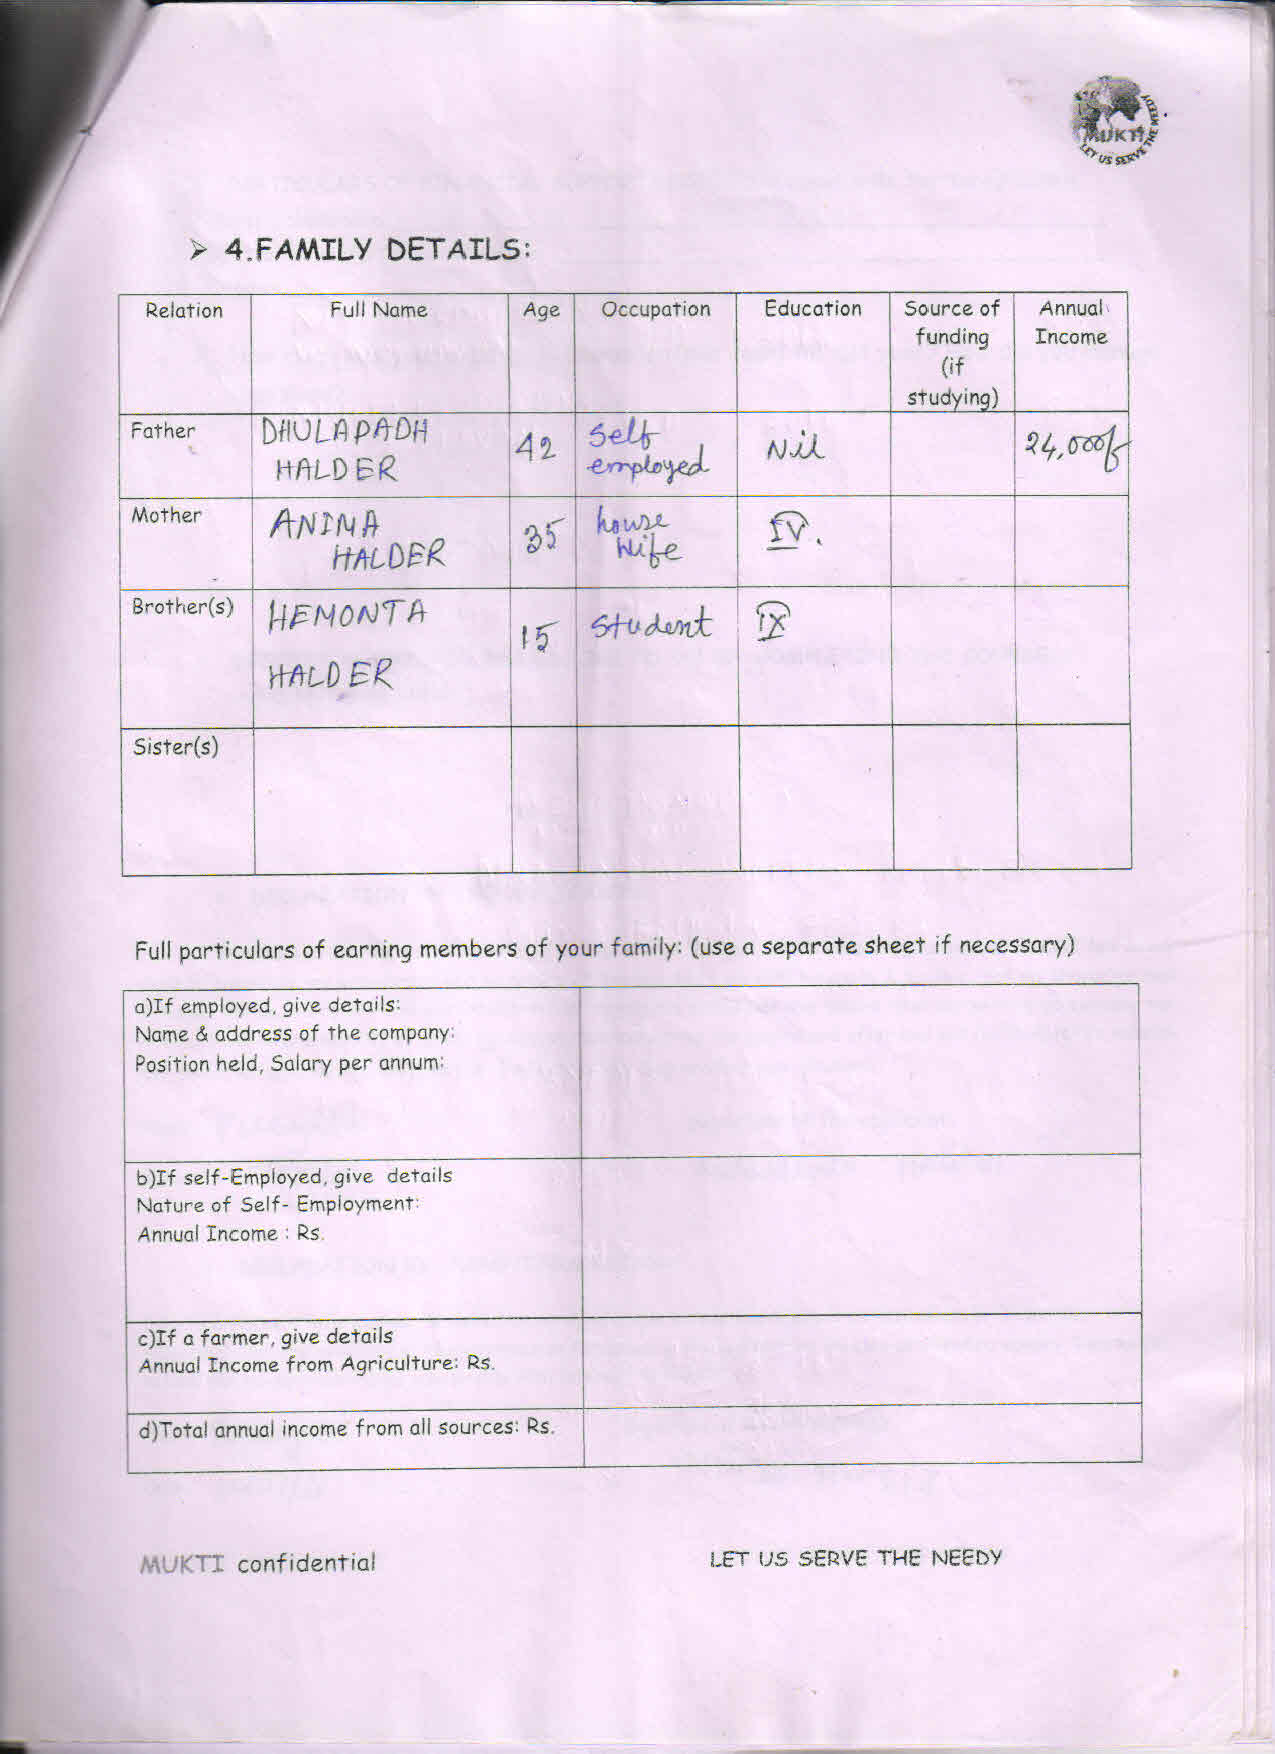 MUKTI
LET US SERVE THE NEEDY
➢ 4.FAMILY DETAILS:
Relation Full Name Age Occupation Education Source of funding (if studying) Annual Income
Father DHULAPADH HALDER 42 Self employed Nil 24,000/-
Mother ANIMA HALDER 35 house Wife IV.
Brother(s) HEMONTA HALDER 15 Student IX
Sister(s)
Full particulars of earning members of your family: (use a separate sheet if necessary)
a)If employed, give details:
Name & address of the company:
Position held, Salary per annum:
b)If self-Employed, give details
Nature of Self- Employment:
Annual Income : Rs.
c)If a farmer, give details
Annual Income from Agriculture: Rs.
d)Total annual income from all sources: Rs.
MUKTI confidential LET US SERVE THE NEEDY